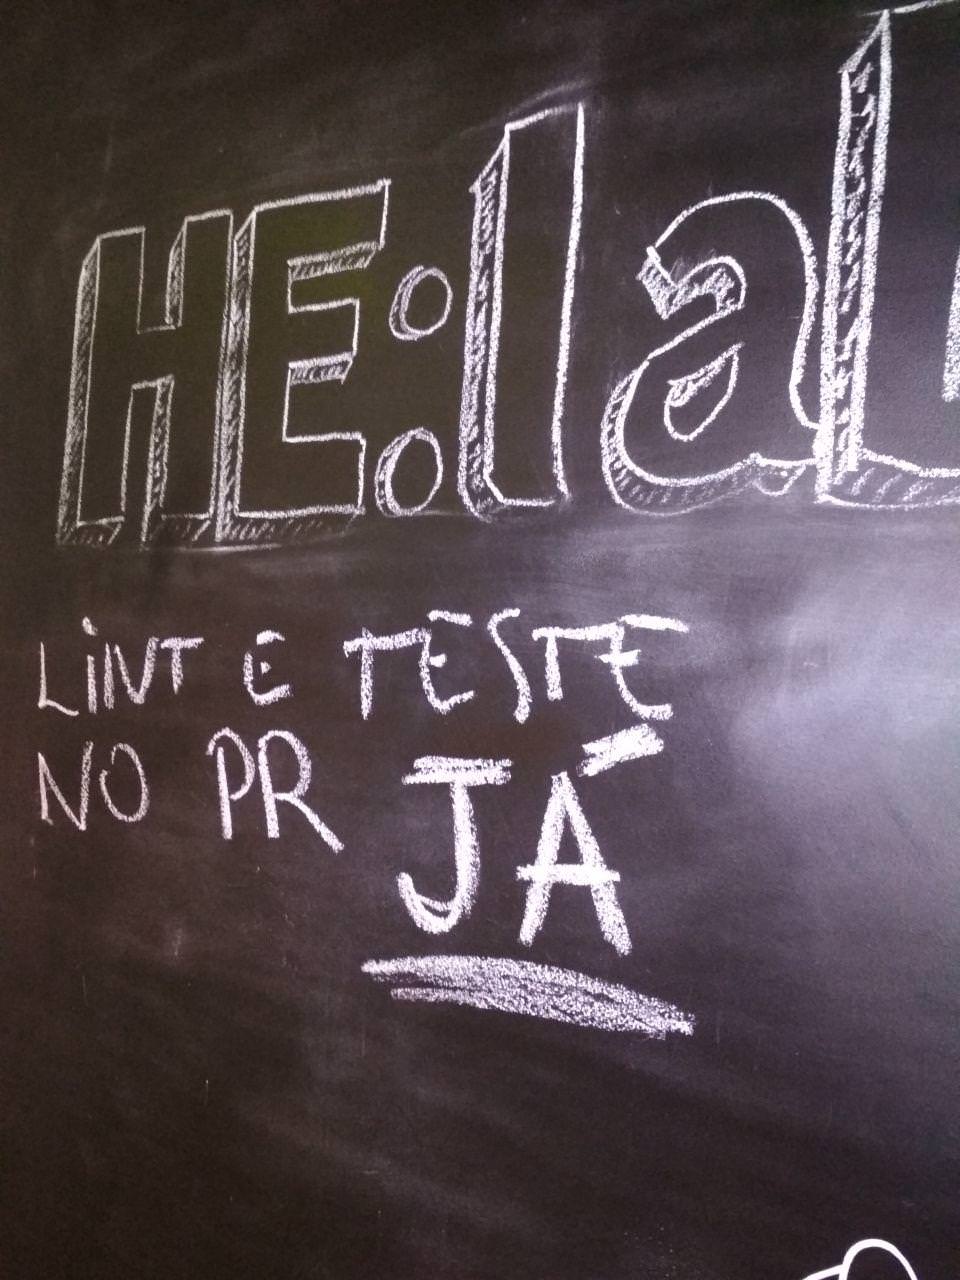 HE:lab
LINT E TESTE
NO PR JÁ